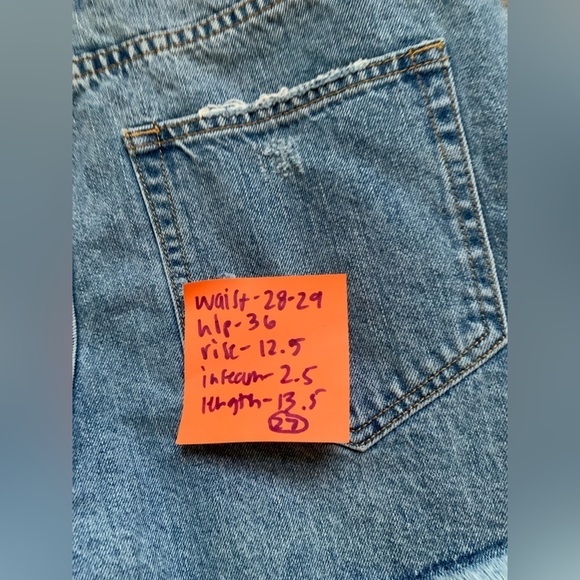 waist-28-29
hip-36
rise-12.5
inseam-2.5
length-13.5
27